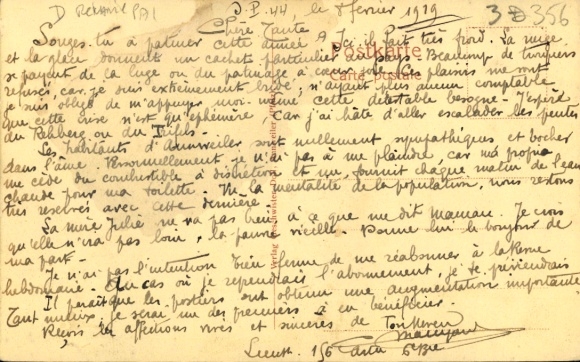 D
S.P. 44 le 8 février 1919
3D 356
Chère Tante
Songes-tu à patiner cette année ? Ici il fait très froid. La neige
et la glace donnent un cachet particulier au pays. Beaucoup de troupiers
se payent de la luge ou du patinage à cœur joie. Ces plaisirs me sont
refusés, car je suis extrêmement ; n'ayant plus aucun comptable
je suis obligé de m'appuyer moi-même cette détestable besogne. J'espère
que cette crise n'est qu'éphémère, car j'ai hâte d'aller escalader les pentes
du Rehberg ou du Trifels.
Les habitants d'Annweiler sont nullement sympathiques et bocher
dans l'âme. Personnellement je n'ai pas à me plaindre, car ma proprio
me cède du combustible à discrétion et me fournit chaque matin de l'eau
chaude pour ma toilette. Vu la mentalité de la population, nous restons
très réservés avec cette dernière.
La mère Julie ne va pas bien à ce que me dit Maman. Je crois
qu'elle n'ira pas loin, la pauvre vieille. Donne lui le bonjour de
ma part.
Je n'ai pas l'intention bien ferme de me réabonner à la Revue
hebdomadaire. Au cas où je reprendrais l'abonnement, je te préviendrais
Il paraît que les postiers ont obtenu une augmentation importante.
Tant mieux, je serai un des premiers à en bénéficier.
Reçois les affections vives et sincères de ton neveu
Lieut 156
Postkarte
Carte postale
Verlag